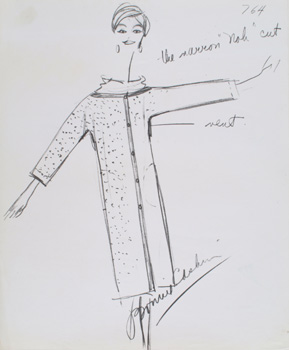 764
the narrow "Noh" cut
vent
Bonnie Cashin